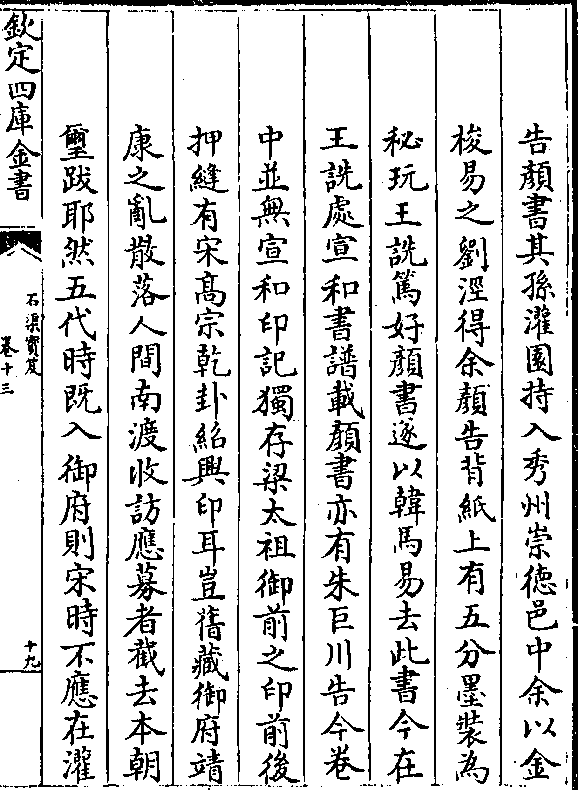 告顔書其孫灌園持入秀州崇徳邑中余以金
梭易之劉涇得余顔告背紙上有五分墨装為
秘玩王詵篤好顔書遂以韓馬易去此書今在
王詵處宣和書譜載顔書亦有朱巨川告今卷
中並無宣和印記獨存梁太祖御前之印前後
押縫有宋髙宗乾卦紹興印耳豈舊藏御府靖
康之亂散落人間南渡收訪應募者截去本朝
璽跋耶然五代時既入御府則宋時不應在灌
欽定四庫全書
石渠寳笈
卷十三
十九